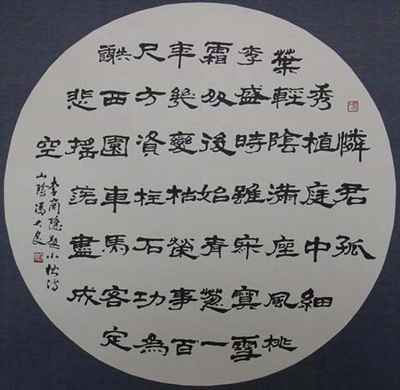 憐君孤
秀植庭中細
葉輕陰滿座風桃
李盛時雖寂寞雪
霜多後始青蔥一
年幾變枯榮事百
尺方資柱石功為
謝西園車馬客定
悲搖落盡成
空
李商隱題小松詩
山陰馮大